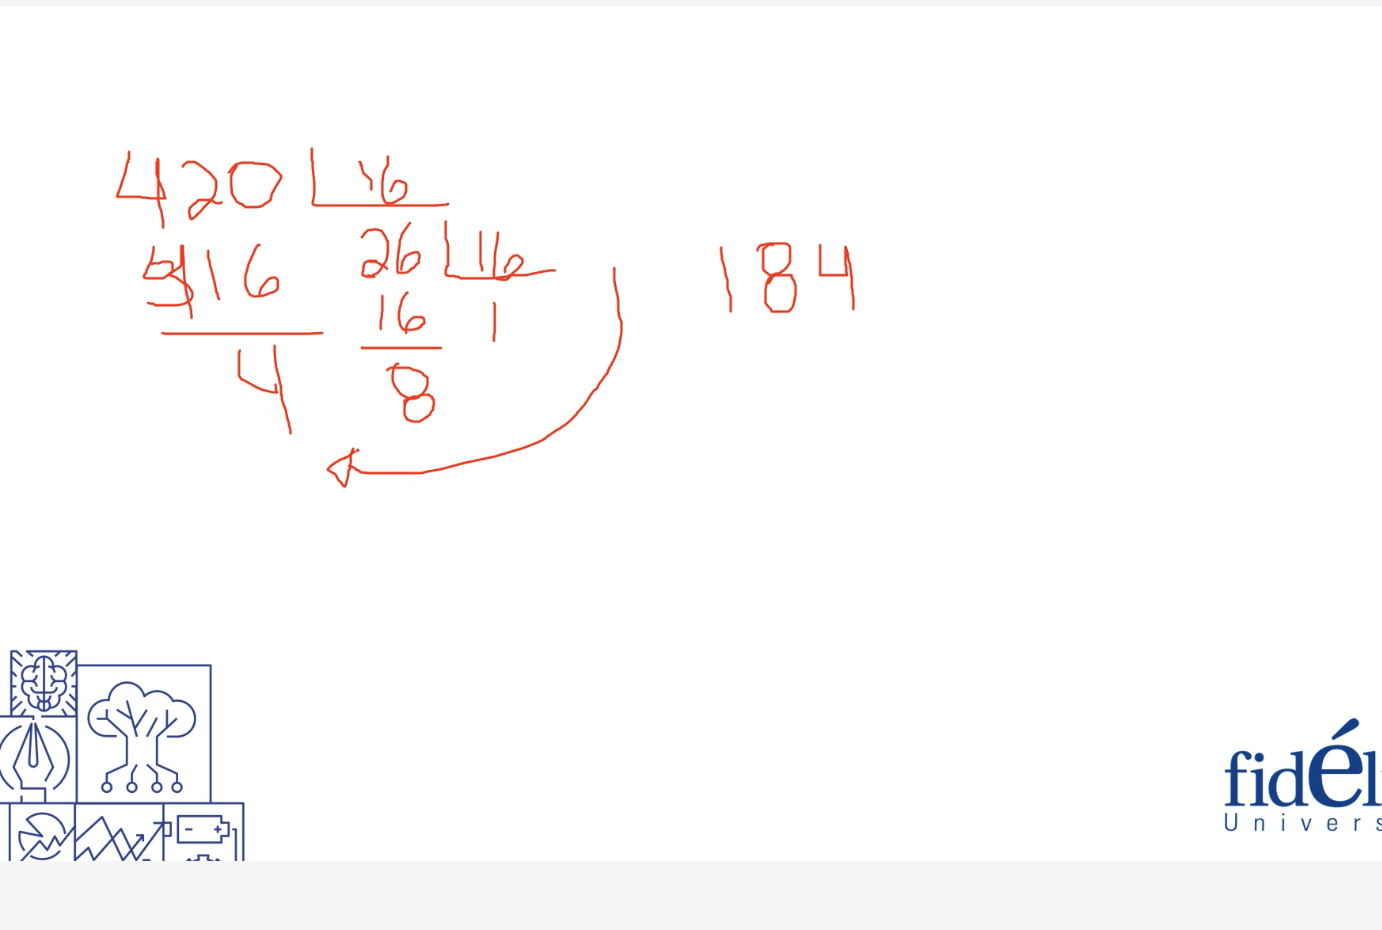 420 16
416 26 16
16 1
4 8
184
fidél
Univers